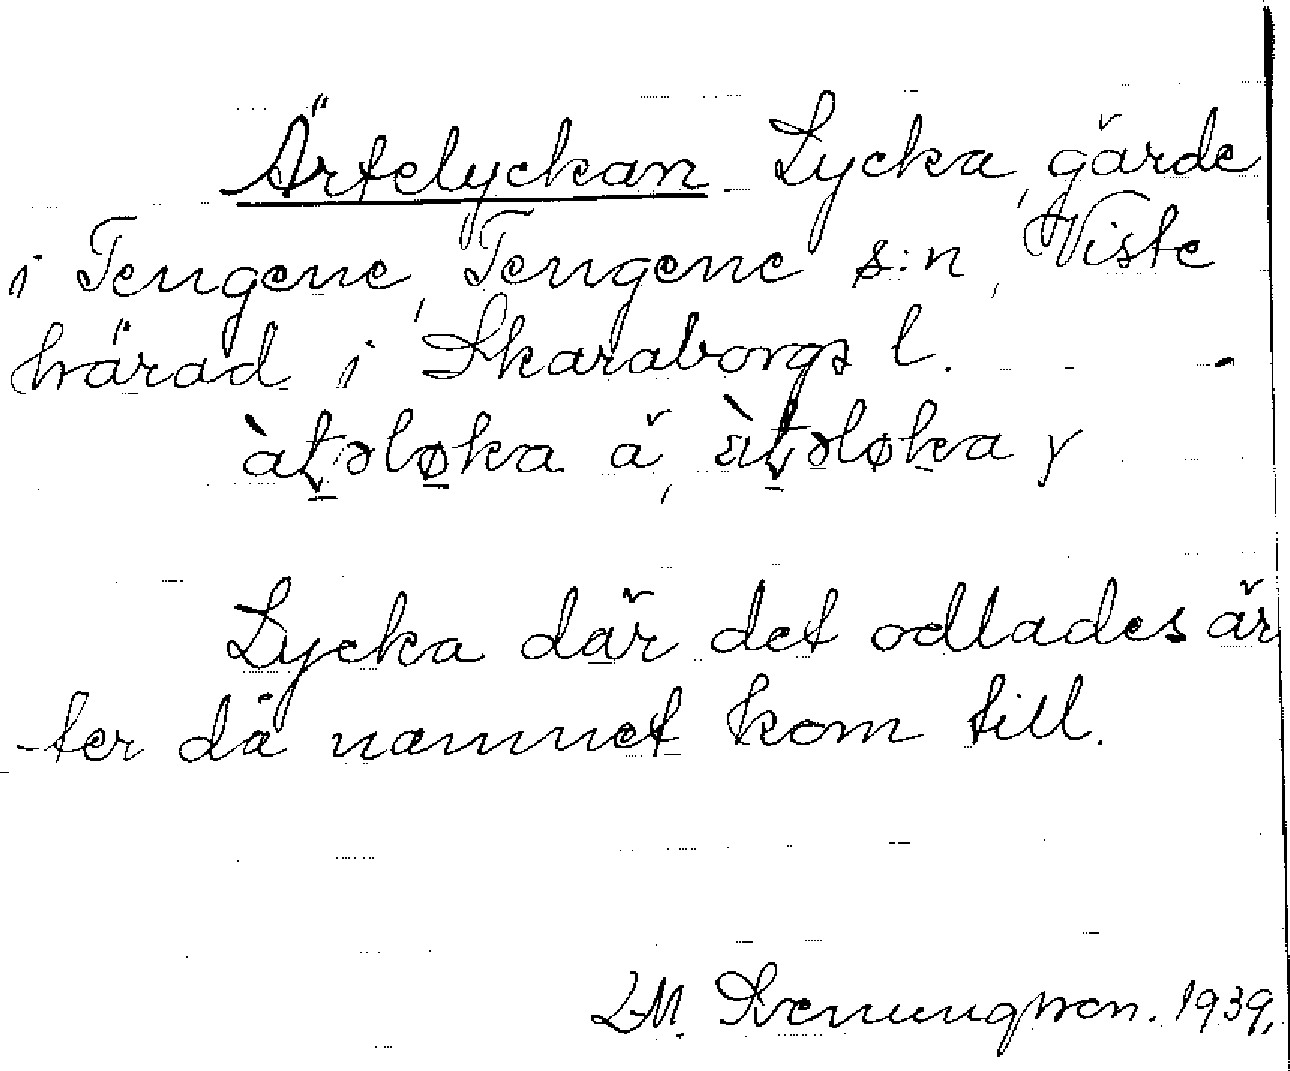 Ärtelyckan Lycka, gärde
i Tengene, Tengene s:n, Viste
härad i Skaraborgs l.
àt̠əlø̠ka ä, 
Lycka där det odlades är
-ter då namnet kom till.
L.M. 1939.